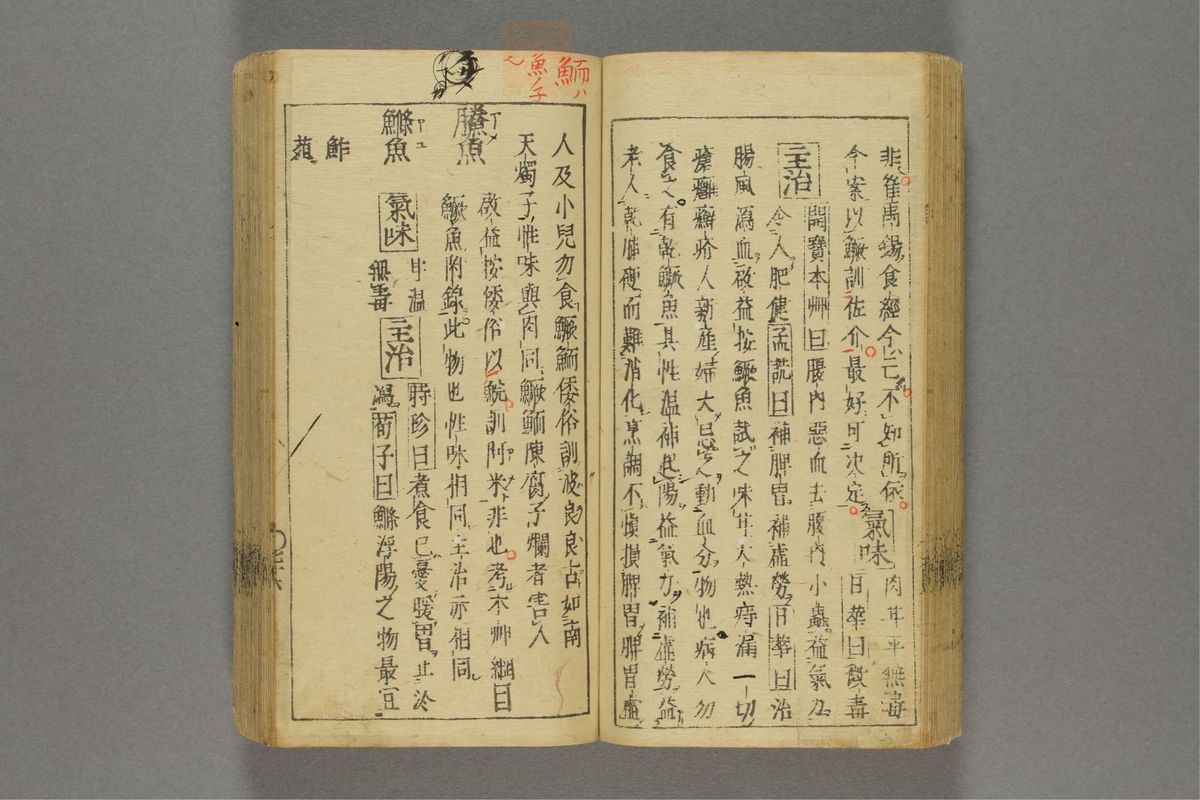 非崔禹錫食經今亡不知所依氣味肉甘平無毒
今案以鱖訓佐介最好可決定日華曰微毒
主治開寶本艸曰腹內惡血去腹內小蟲益氣力
令人肥健孟詵曰補脾胃補虛勞日華曰治
腸風瀉血啟益按鱖魚試之味甘大熱痔漏一切
瘡癰癬疥人新產婦大忌之動血分物也病人勿
食之有乾鱖魚其性溫補起陽益氣力補虛勞益
老人乾肺硬而難消化烹調不慎損脾胃脾胃虛
鰤ハ
魚子
人及小兒勿食鱖鰤倭俗訓波良良古如南
天燭子性味與肉同鱖鰤陳腐子爛者害人
䲍魚
啟益按倭俗以鯇訓阿米非也考本艸綱目
鱖魚附錄此物也性味相同主治亦相同
鰷魚
氣味甘溫無毒主治時珍曰煮食已憂暖胃止冷
瀉荀子曰鰷浮陽之物最宜
鮓